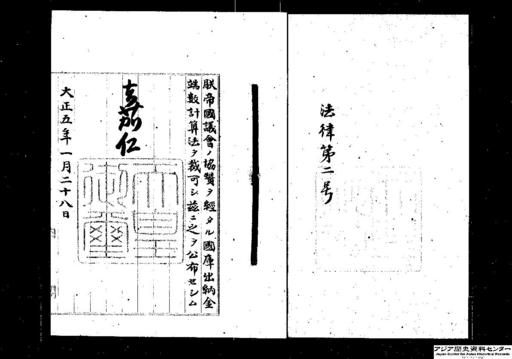 法律第二号
朕帝國議會ノ協贊ヲ經タル國庫出納金
端數計算法ヲ裁可シ茲ニ之ヲ公布セシム
嘉仁
天皇御璽
大正五年一月二十八日
アジア歴史資料センター
Japan Center for Asian Historical Records